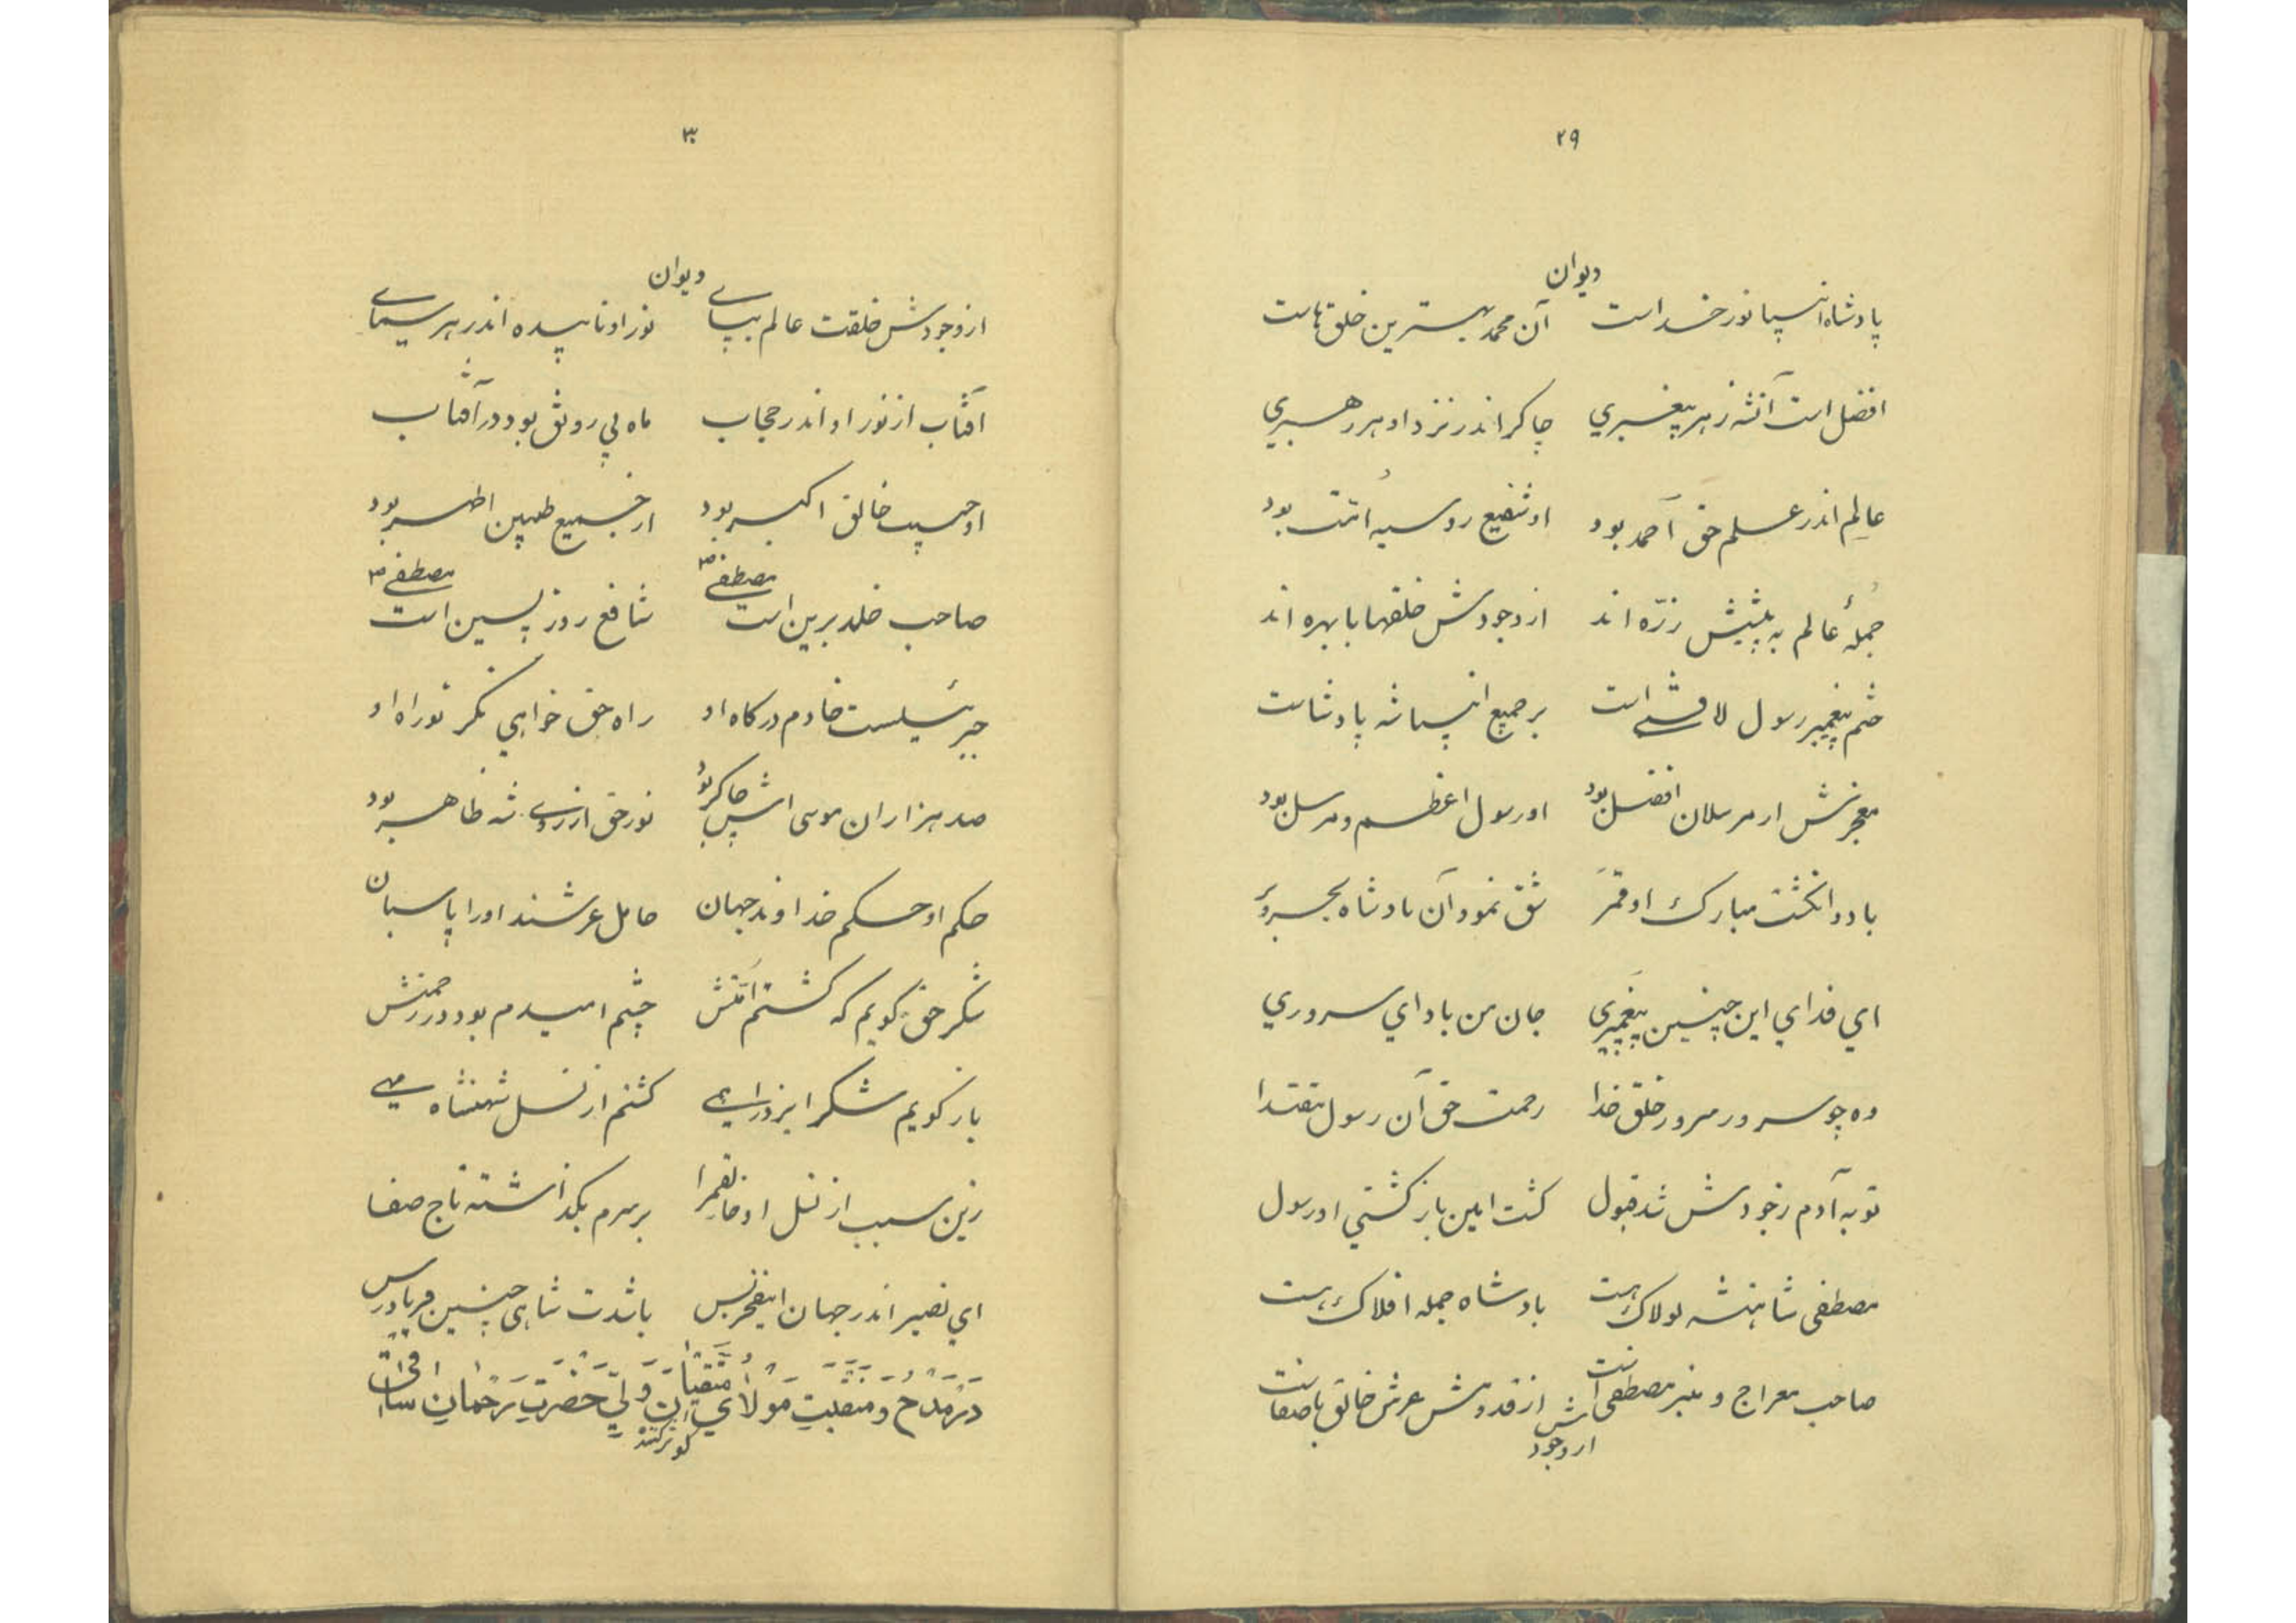 ۲۹
دیوان
پادشاه انبیا نور خداست آن محمد بهترین خلقهاست
افضل است آنشه ز هر پیغمبري چاکر اندر نزد او هر رهبري
عالِم اندر علم حق احمد بود او شفیع رو سیه اُمّت بود
جُملهٔ عالم به پیشش ذرّه اند از وجودش خلقها با بهره اند
ختم پیغمبر رسول لافتی است بر جمیع انبیا شه پادشاست
معجزتش از مرسلان افضل بود او رسول اعظم و مرسل بود
با دو انگشت مبارک او قمر شقّ نمود آن پادشاه بحر و بر
اي فداي این چنین پیغمبری جان من باد اي سروري
وه چو سرور سرور خلق خدا رحمت حق آن رسول مقتدا
توبه آدم ز جودش شد قبول کشت ایمن باز کشتي او رسول
مصطفی شاهنشه لولاک هست پادشاه جمله افلاک هست
صاحب معراج و منبر مصطفی است از قدومش عرش خالق با صفاست
از وجودش
۳۰
دیوان
از وجودش خلقت عالم بپاے نور او تابیده اندر هر سماے
آفتاب از نور او اندر حجاب ماه بي رونق بود در آفتاب
او حبیب خالق اکبر بود از جمیع طیبین اطهر بود
صاحب خلد برین است مصطفےٰ شافع روز پسین است مصطفےٰ
جبرئیلست خادم درکاه او راه حق خواهي نکر تو راه او
صد هزاران موسی اش چاکر بُود نور حق از روے شه ظاهر بود
حکم او حکم خداوند جهان حامل عرشند او را پاسبان
شکر حق کویم که کشتم اُمّتش چشم امیدم بود در رحمتش
باز کویم شکر ایزد را همے کشتم از نسل شهنشاه مهے
زین سبب از نسل او بر سرم بکذاشته تاج صفا
اي نصیر اندر جهان این فخر بس باشدت شاهی چنین فریادرس
در مَدْح و مَنقَبَتِ مَولايِ مُتَّقیان وَليّ حَضْرَتِ رَحْمٰان ساقی
کوثر